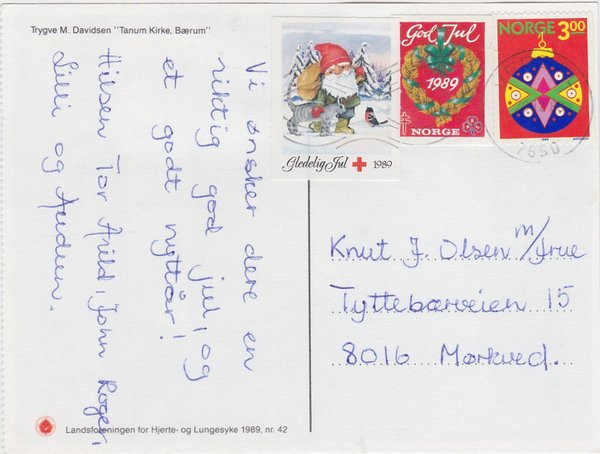 Trygve M. Davidsen "Tanum Kirke, Bærum"
Vi ønsker dere en
riktig god jul, og
et godt nyttår!
Hilsen Tor Arild, John Roger,
Lilli og Audun.
Gledelig Jul 1989
God Jul
1989
NORGE
NORGE 3.00
7650
Knut J. Olsen m/frue
Tyttebærveien 15
8016 Mørkved.
Landsforeningen for Hjerte- og Lungesyke 1989, nr. 42